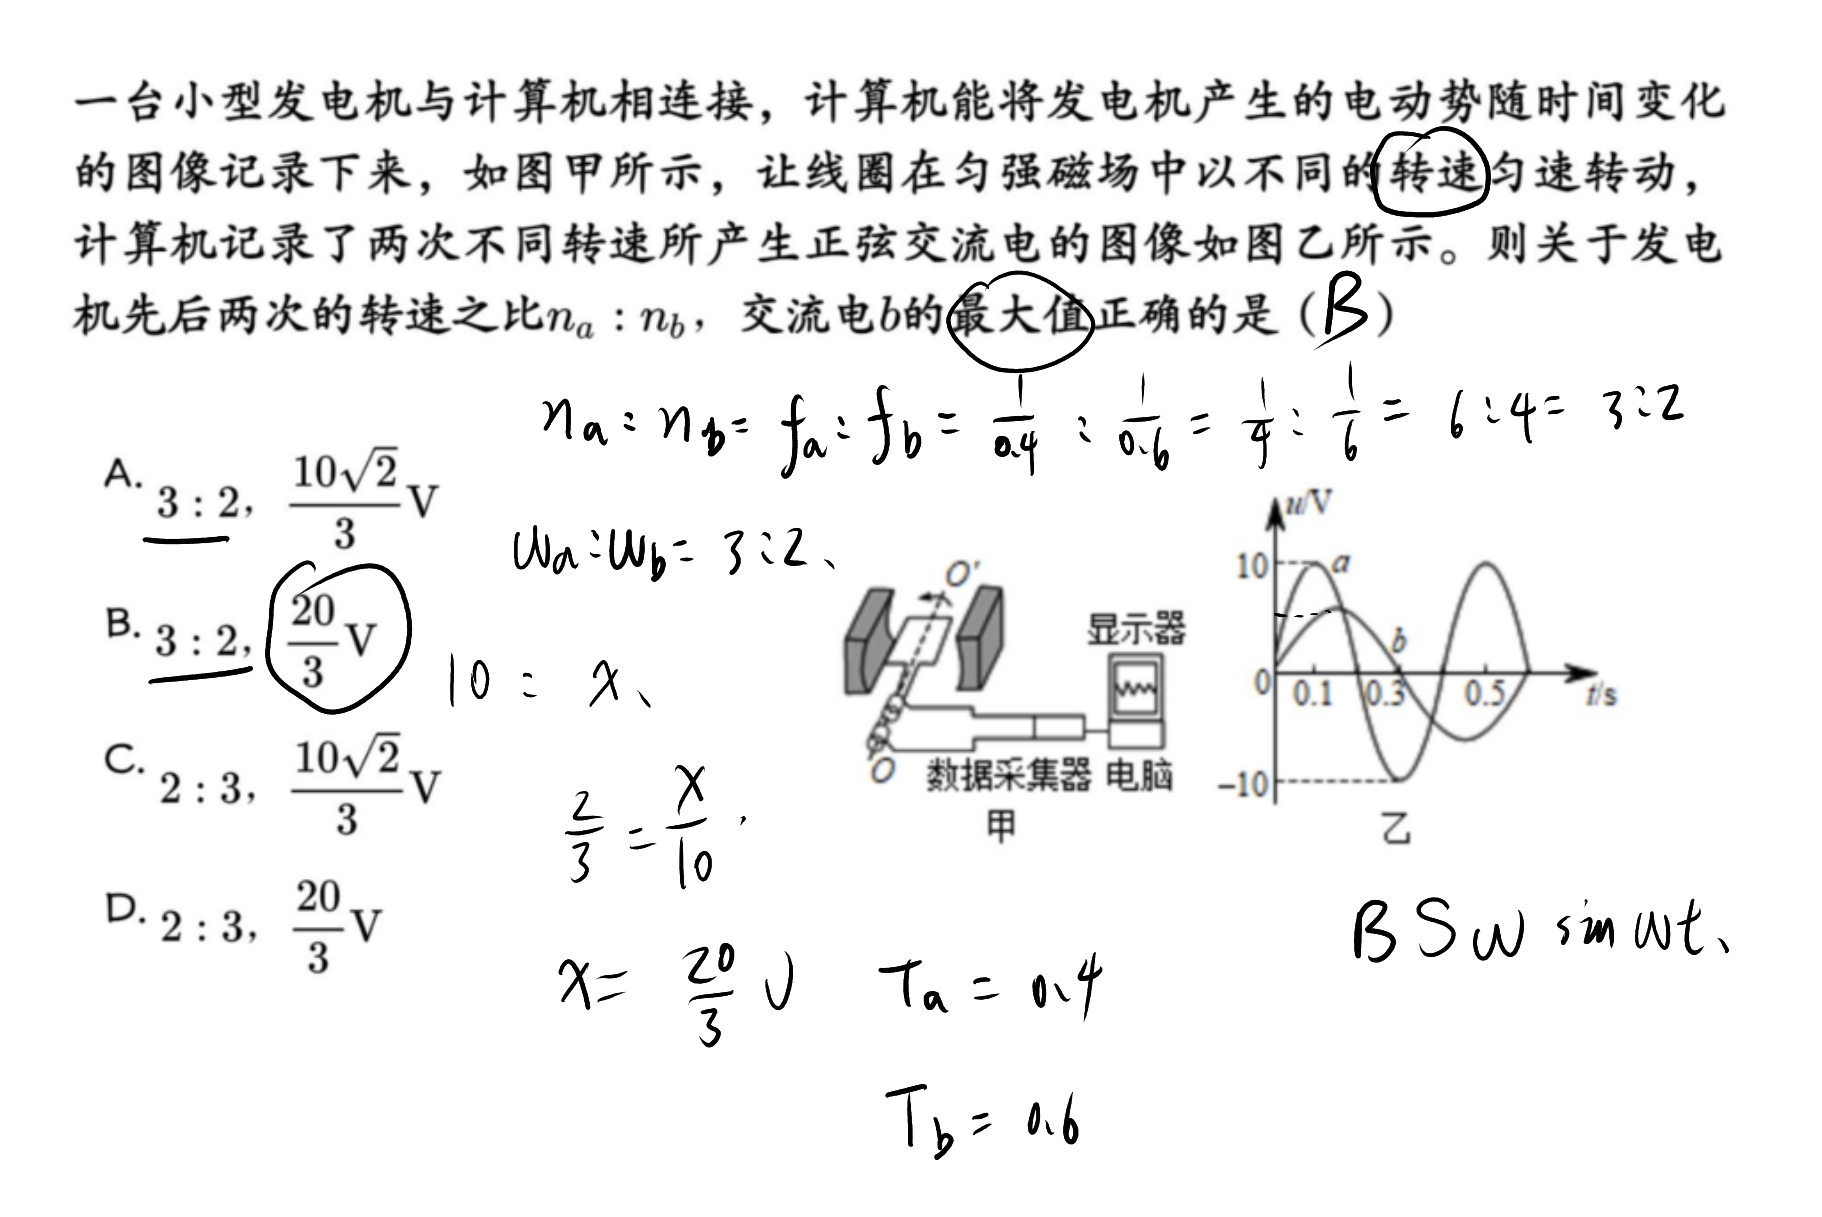 一台小型发电机与计算机相连接，计算机能将发电机产生的电动势随时间变化
的图像记录下来，如图甲所示，让线圈在匀强磁场中以不同的转速匀速转动，
计算机记录了两次不同转速所产生正弦交流电的图像如图乙所示。则关于发电
机先后两次的转速之比n_a : n_b，交流电b的最大值正确的是（B）
n_a : n_b = f_a : f_b = 1/0.4 : 1/0.6 = 1/4 : 1/6 = 6:4 = 3:2
A. 3 : 2， 10√2/3 V
ω_a : ω_b = 3:2、
B. 3 : 2， 20/3 V
10 : x、
C. 2 : 3， 10√2/3 V
2/3 = x/10
D. 2 : 3， 20/3 V
x = 20/3 V
O'
显示器
O
数据采集器 电脑
甲
u/V
10
a
b
0 0.1 0.3 0.5 t/s
-10
乙
BSω sin ωt、
T_a = 0.4
T_b = 0.6